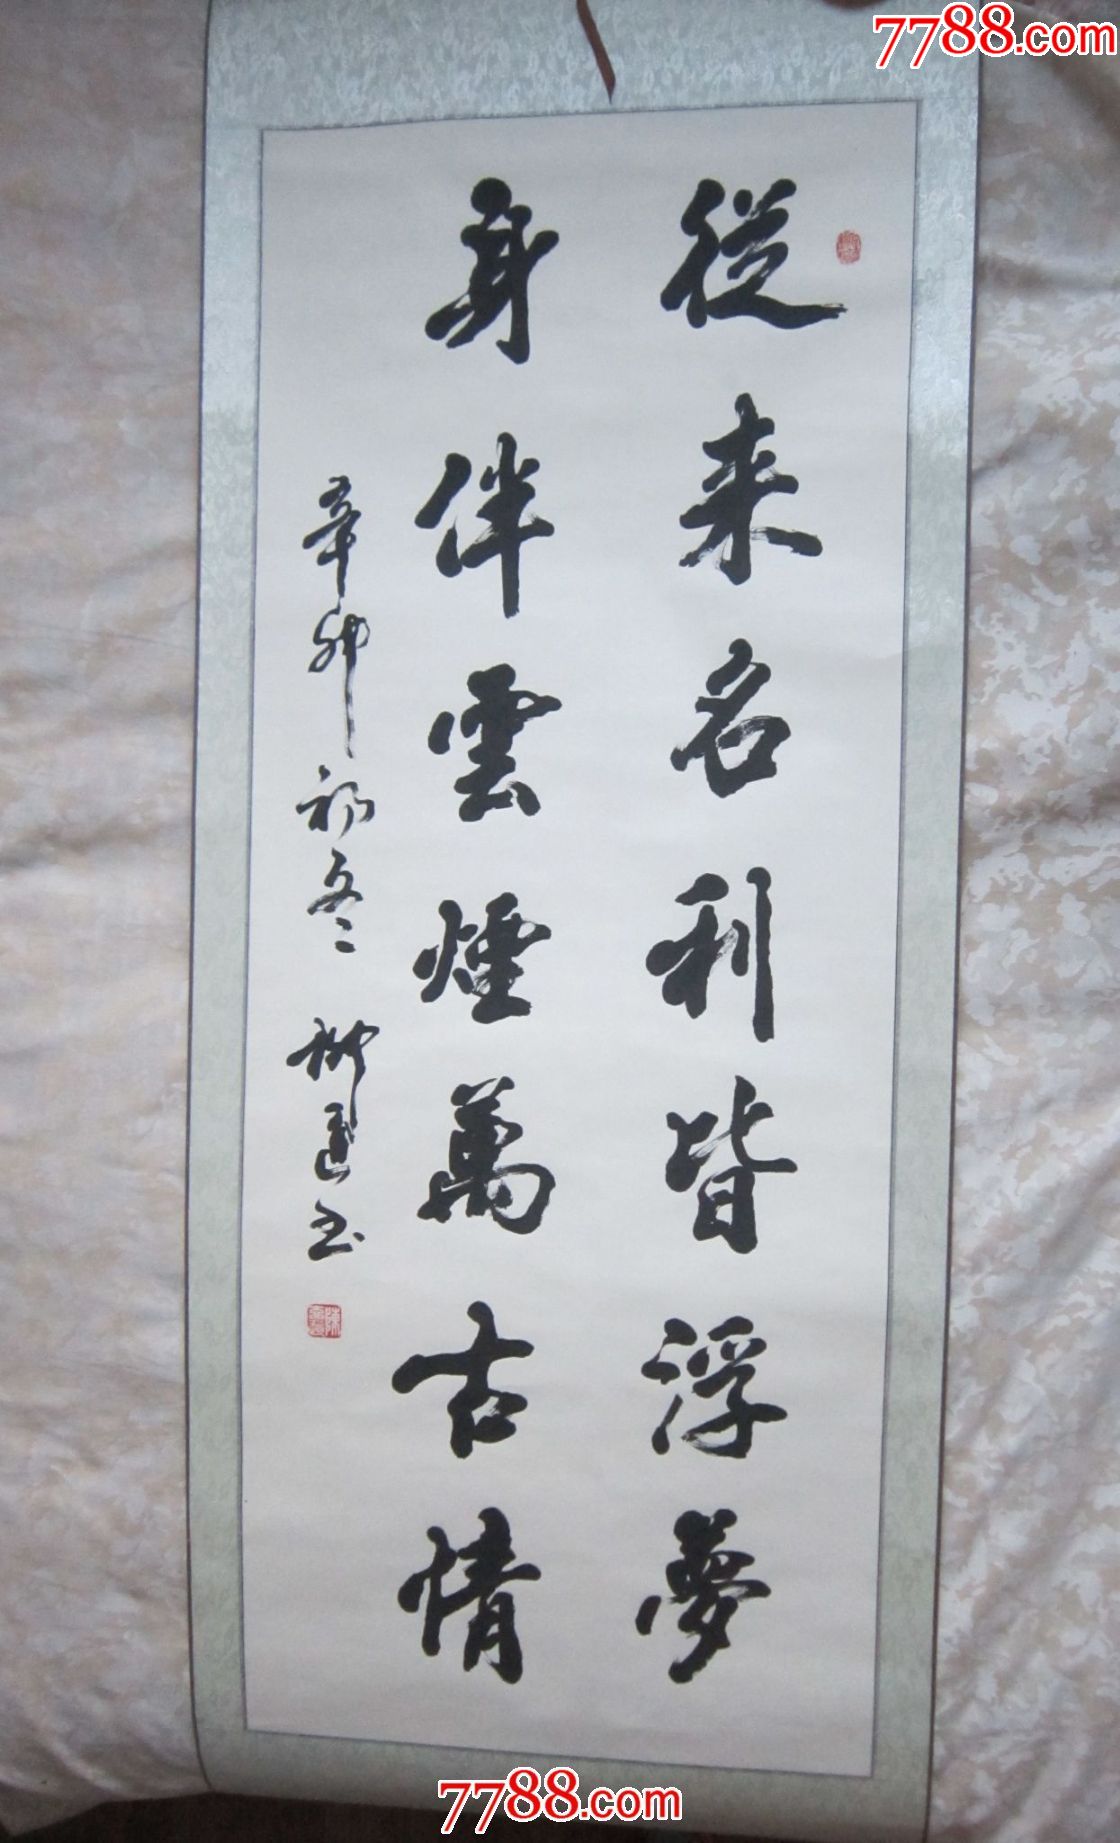 7788.com
從来名利皆浮夢
身伴雲煙萬古情
辛卯初冬
7788.com